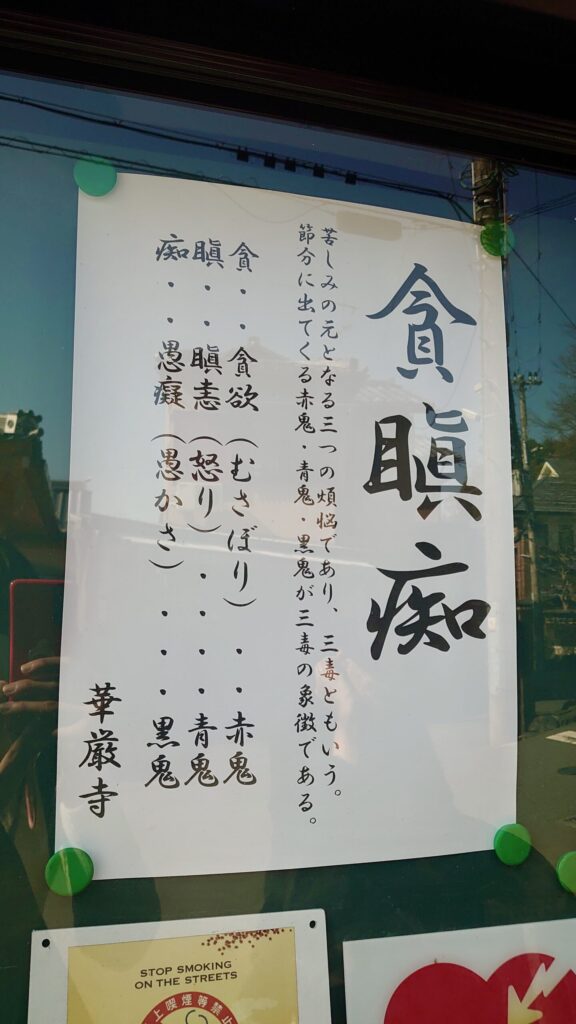 貪瞋痴
苦しみの元となる三つの煩悩であり、三毒ともいう。
節分に出てくる赤鬼・青鬼・黒鬼が三毒の象徴である。
貪・・貪欲(むさぼり)・・赤鬼
瞋・・瞋恚(怒り)・・・・青鬼
痴・・愚癡(愚かさ)・・・黒鬼
華厳寺
STOP SMOKING
ON THE STREETS
上喫煙等禁止